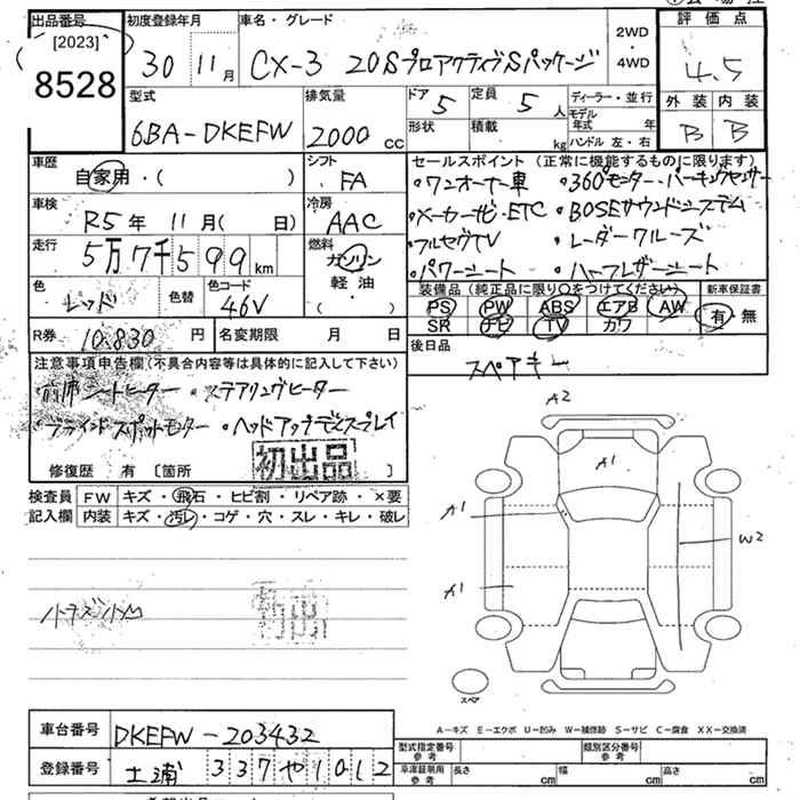 出品番号 [2023] 8528
初度登録年月 30 11月
車名・グレード CX-3 20SプロアクティヴSパッケージ
2WD・4WD
評価点 4.5
外装 内装
B B
型式 6BA-DKEFW
排気量 2000 cc
ドア 5 定員 5 人
形状 積載 kg
ディーラー・並行
モデル年式 年
ハンドル 左・右
車歴 自家用・( )
シフト FA
車検 R5年 11月( 日)
冷房 AAC
走行 5万7千599km
燃料 ガソリン 軽油 ( )
色 レッド 色替 色コード 46V
R券 10,830 円 名変期限 月 日
セールスポイント (正常に機能するものに限ります)
・ワンオーナー車 ・360°モニター・パーキングセンサー
・メーカーナビ・ETC ・BOSEサウンドシステム
・フルセグTV ・レーダークルーズ
・パワーシート ・ハーフレザーシート
装備品 (純正品に限り○をつけてください) 新車保証書
PS PW ABS エアB AW 有・無
SR ナビ TV カワ
後日品
スペアキー
注意事項申告欄(不具合内容等は具体的に記入して下さい)
・前席シートヒーター ・ステアリングヒーター
・ブラインドスポットモニター ・ヘッドアップディスプレイ
修復歴 有 〔箇所 〕
初出品
検査員 FW キズ・飛石・ヒビ割・リペア跡・×要
記入欄 内装 キズ・汚レ・コゲ・穴・スレ・キレ・破レ
小キズ小凹
A2
A1
A1
W2
A1
スペア
A-キズ E-エクボ U-凹み W-補修跡 S-サビ C-腐食 XX-交換済
車台番号 DKEFW-203432
登録番号 土浦 337 や 1012
型式指定番号 参考 類別区分番号 参考
車庫証明用 参考 長さ cm 幅 cm 高さ cm